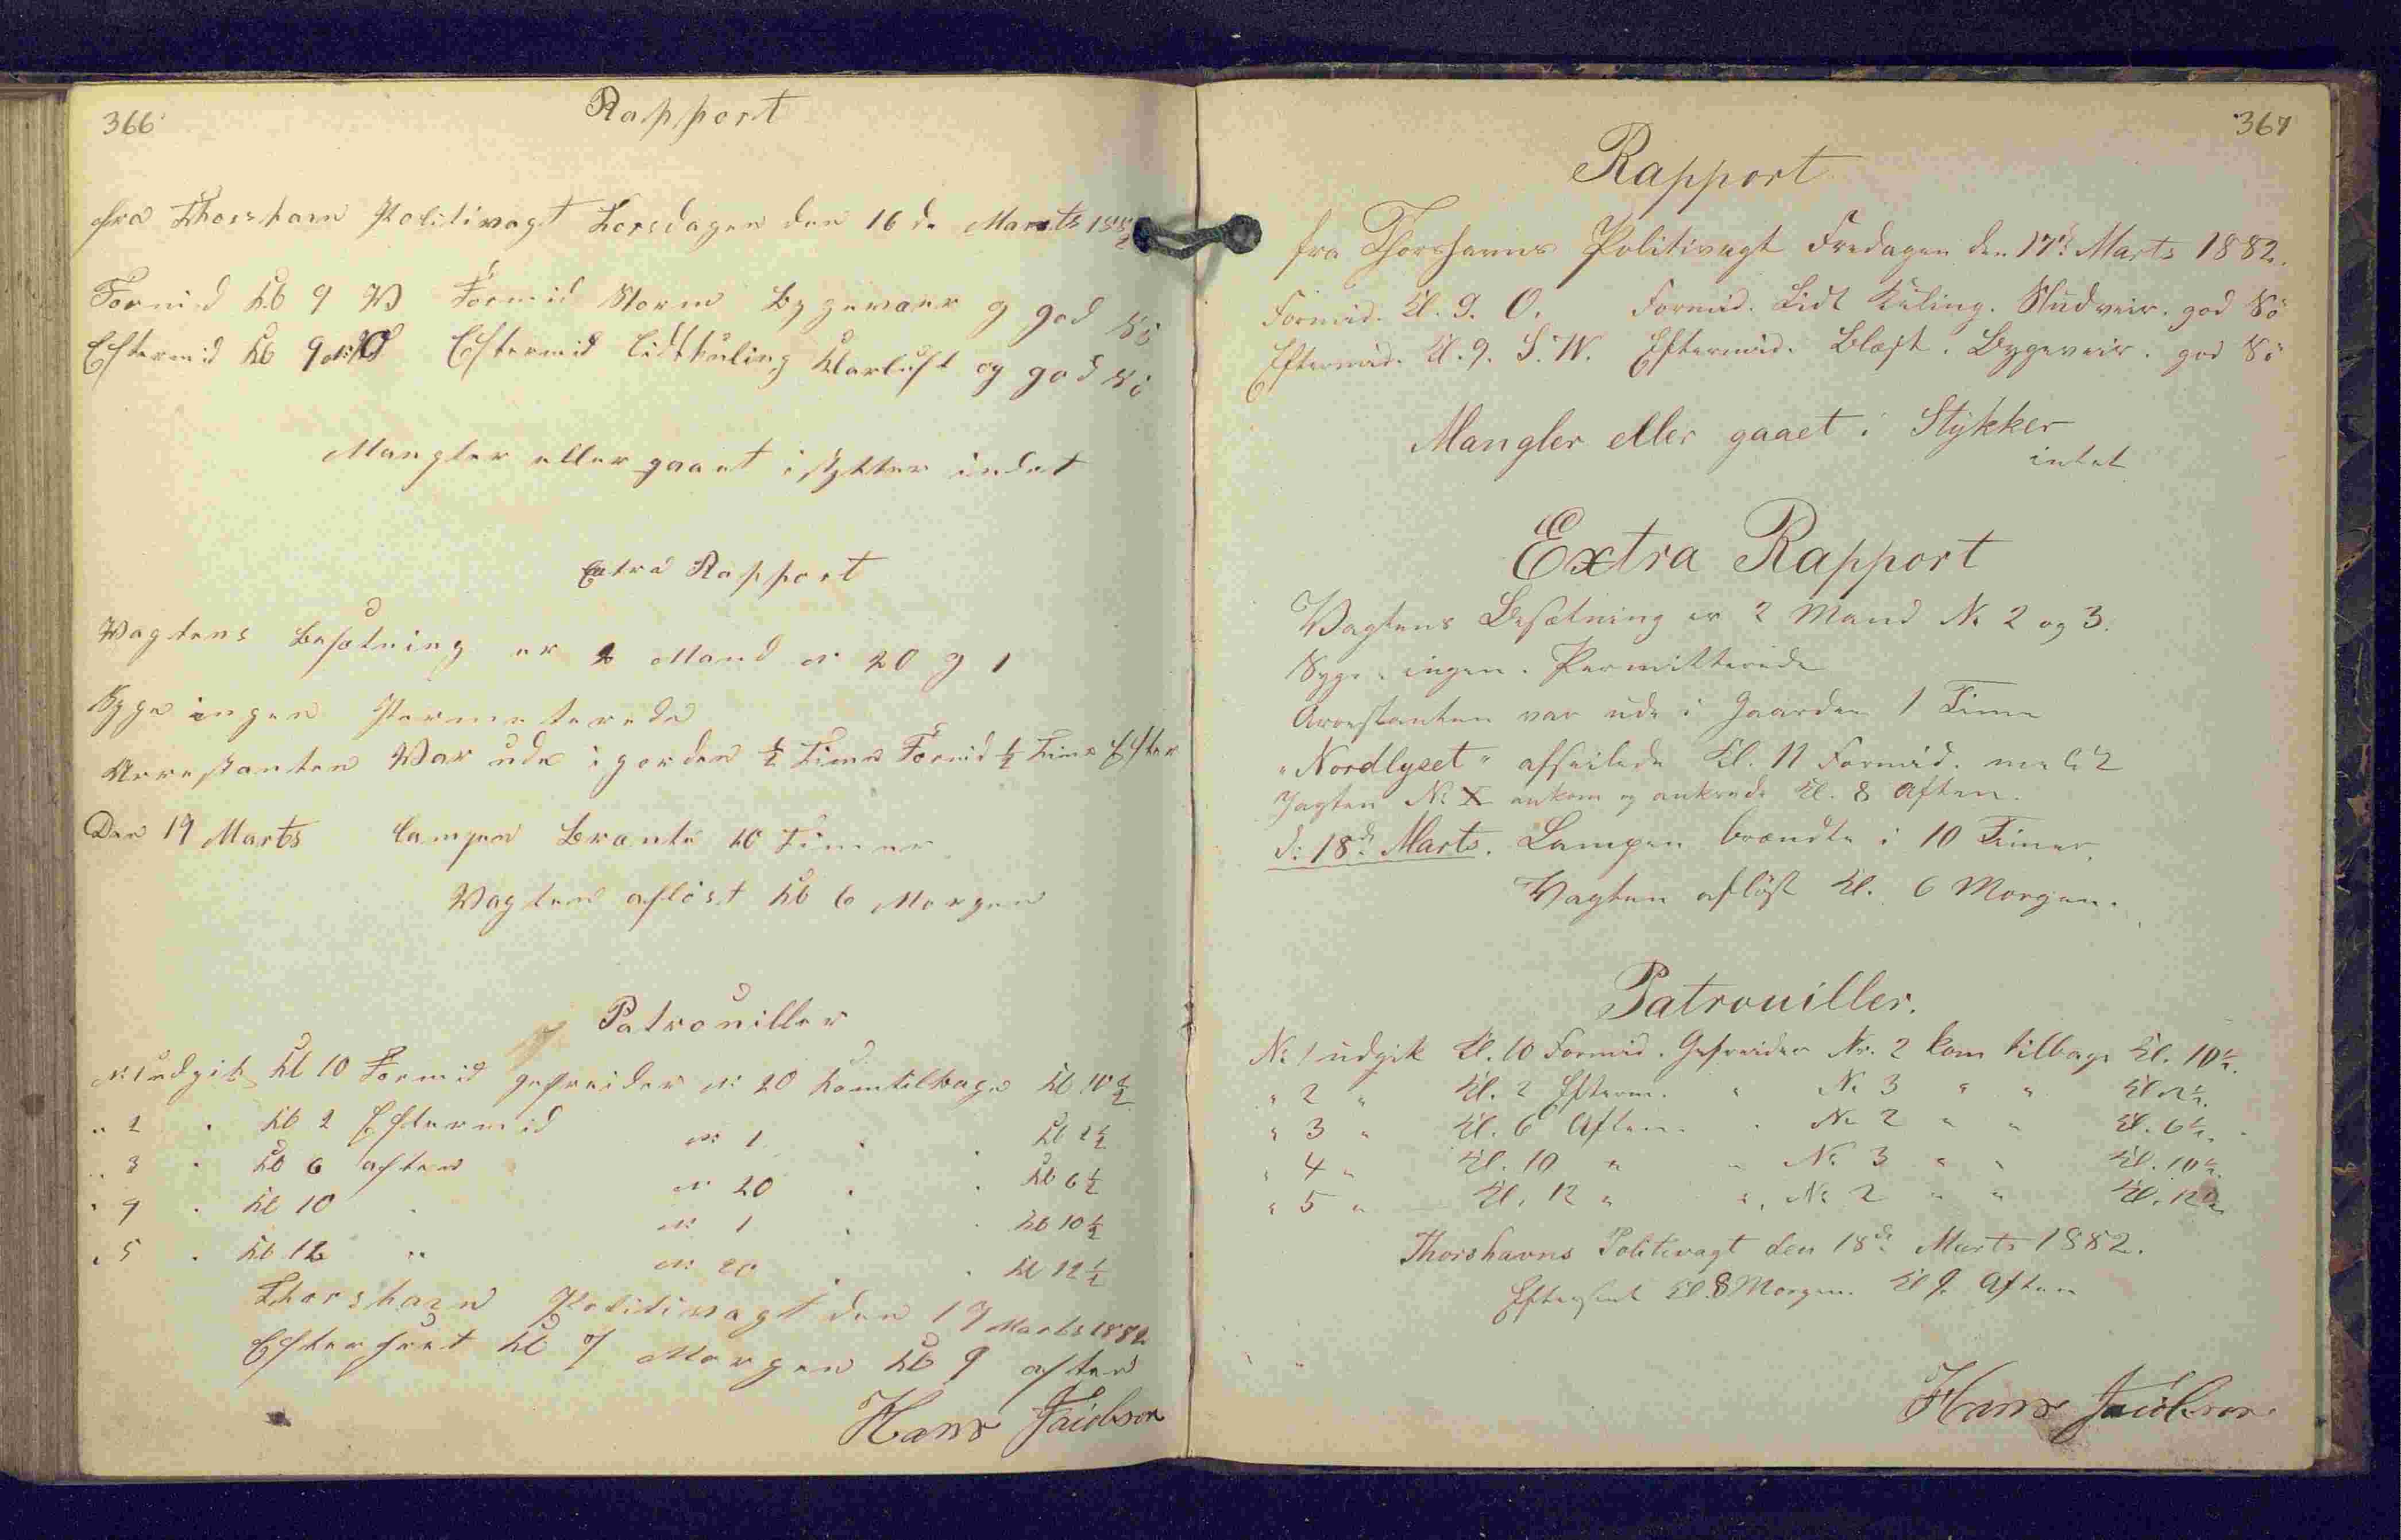 366
Rapport
fra Thorshavn Politivagt Torsdagen den 16 de Marts 1882
Formid Kl 9 V Formid Storm Bygevær og god Sö
Eftermid Kl 9 Eftermid lidt kuling Klarluft og god Sö
Mangler eller gaaet i stykker indet
Extra Rapport
Vagtens Besætning er 2 Mand N: 20 og 1
Syge ingen Permeterede
Arrestanten Var ude i gorden ½ Time Formid ½ Time Efter
Den 17 Marts Lampen Brænte 10 Timer
Vagten aflöst Kl 6 Morgen
Patrouiller
N: 1 udgik Kl 10 Formid gefreider N: 20 kom tilbage Kl 10½
" 2 " Kl 2 Eftermid N: 1 " " Kl 2½
" 3 " Kl 6 aften N: 20 " " Kl 6½
" 4 " Kl 10 " N: 1 " " Kl 10½
" 5 " Kl 12 " N: 20 " " Kl 12½
Thorshavn Politivagt den 17 Marts 1882
Efterseet Kl 7 Morgen Kl 9 aften
Hans Jacobsen
367
Rapport
fra Thorshavns Politivagt Fredagen den 17de Marts 1882.
Formid. Kl. 9. O. Formid. Lidt Kuling. Sludveir. god Sö
Eftermid. Kl. 9. S.W. Eftermid. Blæst. Bygeveir. god Sö
Mangler eller gaaet i Stykker
intet
Extra Rapport
Vagtens Besætning er 2 Mand No 2 og 3.
Syge: ingen. Permitterede
Arrestanten var ude i Gaarden 1 Time
"Nordlyset" afseilede Kl. 11 Formid.
Jagten No X ankom og ankrede Kl. 8 Aften.
d: 18de Marts. Lampen brændte i 10 Timer.
Vagten aflöst Kl. 6 Morgen.
Patrouiller.
No 1 udgik Kl. 10 Formid. Gefreider Nr. 2 kom tilbage Kl. 10½.
" 2 " Kl. 2 Efterm. " No 3 " " Kl. 2½.
" 3 " Kl. 6 Aften. " No 2 " " Kl. 6½.
" 4 " Kl. 10 " " No 3 " " Kl. 10½.
" 5 " Kl. 12 " " No 2 " " Kl. 12½
Thorshavns Politivagt den 18de Marts 1882.
Efterseet Kl. 8 Morgen. Kl 9 Aften
Hans Jacobsen